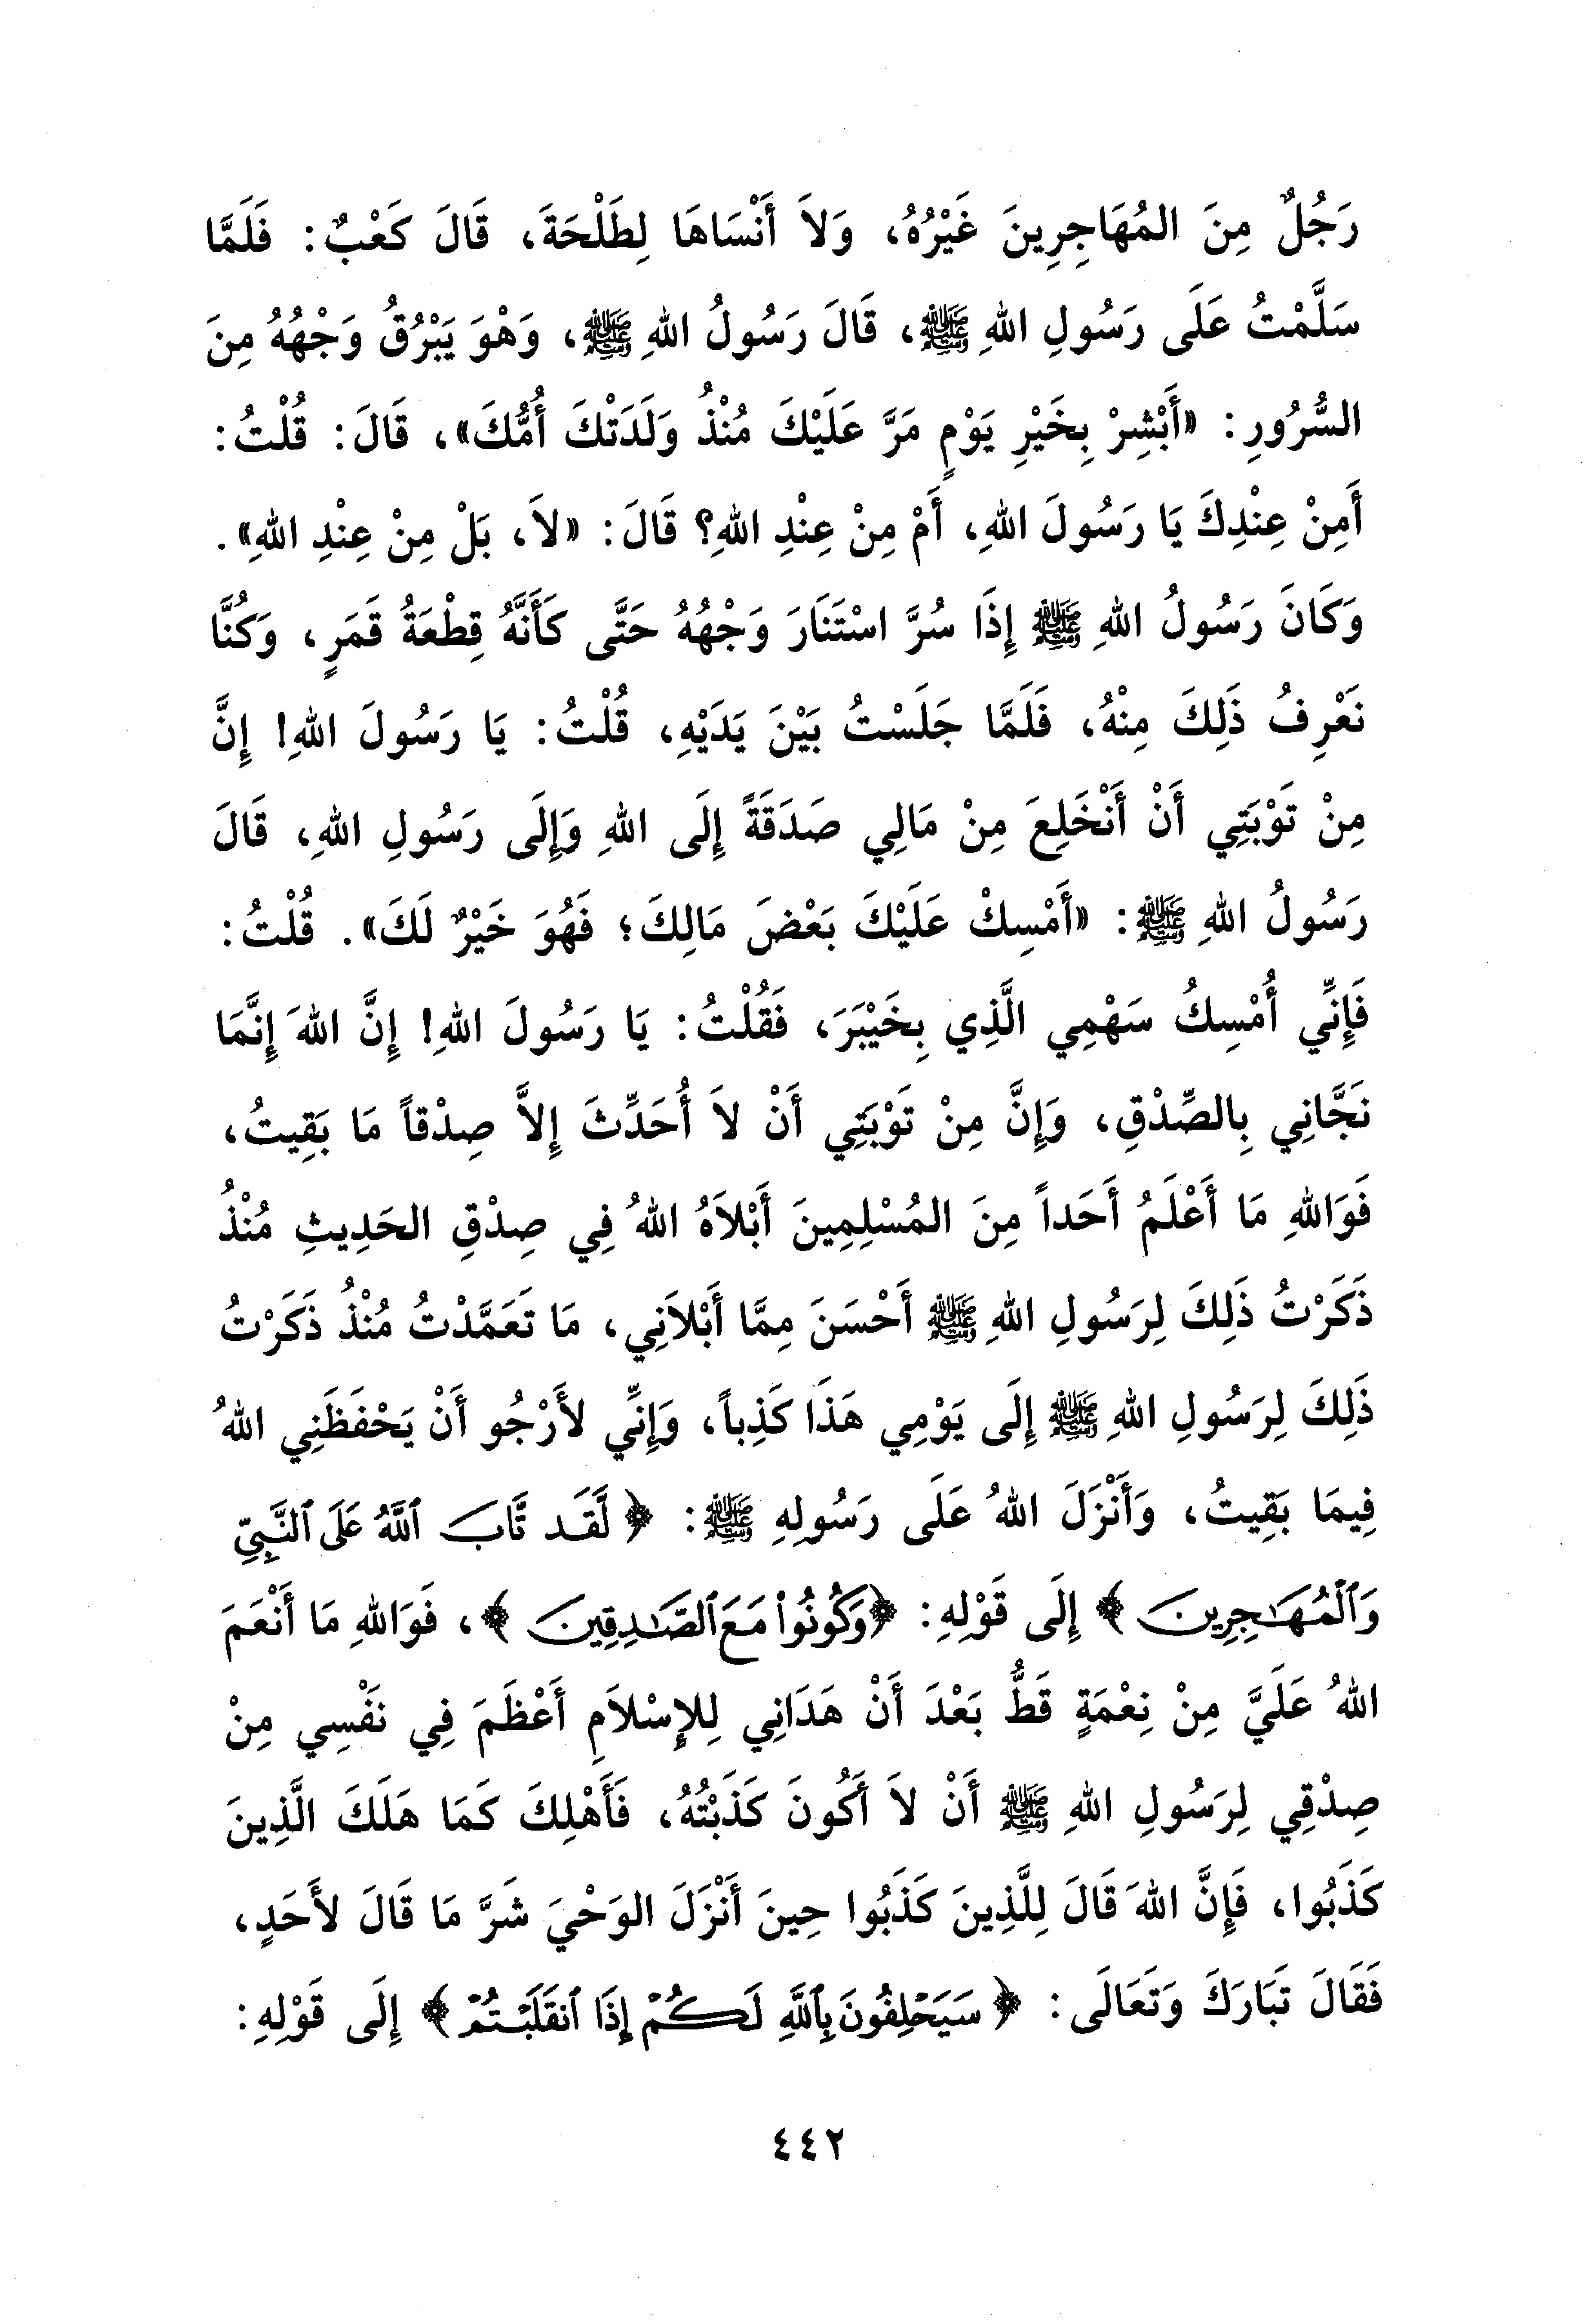 رَجُلٌ مِنَ المُهَاجِرِينَ غَيْرُهُ، وَلاَ أَنْسَاهَا لِطَلْحَةَ، قَالَ كَعْبٌ: فَلَمَّا
سَلَّمْتُ عَلَى رَسُولِ اللهِ ﷺ، قَالَ رَسُولُ اللهِ ﷺ، وَهْوَ يَبْرُقُ وَجْهُهُ مِنَ
السُّرُورِ: «أَبْشِرْ بِخَيْرِ يَوْمٍ مَرَّ عَلَيْكَ مُنْذُ وَلَدَتْكَ أُمُّكَ»، قَالَ: قُلْتُ:
أَمِنْ عِنْدِكَ يَا رَسُولَ اللهِ، أَمْ مِنْ عِنْدِ اللهِ؟ قَالَ: «لاَ، بَلْ مِنْ عِنْدِ اللهِ».
وَكَانَ رَسُولُ اللهِ ﷺ إِذَا سُرَّ اسْتَنَارَ وَجْهُهُ حَتَّى كَأَنَّهُ قِطْعَةُ قَمَرٍ، وَكُنَّا
نَعْرِفُ ذَلِكَ مِنْهُ، فَلَمَّا جَلَسْتُ بَيْنَ يَدَيْهِ، قُلْتُ: يَا رَسُولَ اللهِ! إِنَّ
مِنْ تَوْبَتِي أَنْ أَنْخَلِعَ مِنْ مَالِي صَدَقَةً إِلَى اللهِ وَإِلَى رَسُولِ اللهِ، قَالَ
رَسُولُ اللهِ ﷺ: «أَمْسِكْ عَلَيْكَ بَعْضَ مَالِكَ؛ فَهُوَ خَيْرٌ لَكَ». قُلْتُ:
فَإِنِّي أُمْسِكُ سَهْمِي الَّذِي بِخَيْبَرَ، فَقُلْتُ: يَا رَسُولَ اللهِ! إِنَّ اللهَ إِنَّمَا
نَجَّانِي بِالصِّدْقِ، وَإِنَّ مِنْ تَوْبَتِي أَنْ لاَ أُحَدِّثَ إِلاَّ صِدْقاً مَا بَقِيتُ،
فَوَاللهِ مَا أَعْلَمُ أَحَداً مِنَ المُسْلِمِينَ أَبْلاَهُ اللهُ فِي صِدْقِ الحَدِيثِ مُنْذُ
ذَكَرْتُ ذَلِكَ لِرَسُولِ اللهِ ﷺ أَحْسَنَ مِمَّا أَبْلاَنِي، مَا تَعَمَّدْتُ مُنْذُ ذَكَرْتُ
ذَلِكَ لِرَسُولِ اللهِ ﷺ إِلَى يَوْمِي هَذَا كَذِباً، وَإِنِّي لأَرْجُو أَنْ يَحْفَظَنِي اللهُ
فِيمَا بَقِيتُ، وَأَنْزَلَ اللهُ عَلَى رَسُولِهِ ﷺ: ﴿لَّقَد تَّابَ ٱللَّهُ عَلَى ٱلنَّبِيِّ
وَٱلْمُهَـٰجِرِينَ﴾ إِلَى قَوْلِهِ: ﴿وَكُونُوا۟ مَعَ ٱلصَّـٰدِقِينَ﴾، فَوَاللهِ مَا أَنْعَمَ
اللهُ عَلَيَّ مِنْ نِعْمَةٍ قَطُّ بَعْدَ أَنْ هَدَانِي لِلإِسْلاَمِ أَعْظَمَ فِي نَفْسِي مِنْ
صِدْقِي لِرَسُولِ اللهِ ﷺ أَنْ لاَ أَكُونَ كَذَبْتُهُ، فَأَهْلِكَ كَمَا هَلَكَ الَّذِينَ
كَذَبُوا، فَإِنَّ اللهَ قَالَ لِلَّذِينَ كَذَبُوا حِينَ أَنْزَلَ الوَحْيَ شَرَّ مَا قَالَ لأَحَدٍ،
فَقَالَ تَبَارَكَ وَتَعَالَى: ﴿سَيَحْلِفُونَ بِٱللَّهِ لَكُمْ إِذَا ٱنقَلَبْتُمْ﴾ إِلَى قَوْلِهِ:
٤٤٢